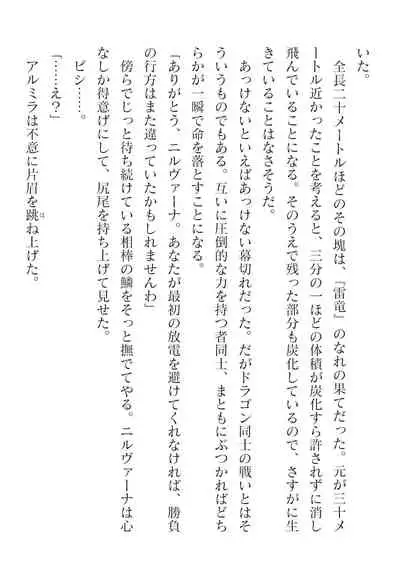 いた。
　全長二十メートルほどのその塊は、『雷竜』のなれの果てだった。元が三十メ
ートル近かったことを考えると、三分の一ほどの体積が炭化すら許されずに消し
飛んでいることになる。そのうえで残った部分も炭化しているので、さすがに生
きていることはなさそうだ。
　あっけないといえばあっけない幕切れだった。だがドラゴン同士の戦いとはそ
ういうものでもある。互いに圧倒的な力を持つ者同士、まともにぶつかればどち
らかが一瞬で命を落とすことになる。
「ありがとう、ニルヴァーナ。あなたが最初の放電を避けてくれなければ、勝負
の行方はまた違っていたかもしれませんわ」
　傍らでじっと待ち続けている相棒の鱗をそっと撫でてやる。ニルヴァーナは心
なしか得意げにして、尻尾を持ち上げて見せた。
　ピシ……。
「……え？」
　アルミラは不意に片眉を跳は(ね)上げた。